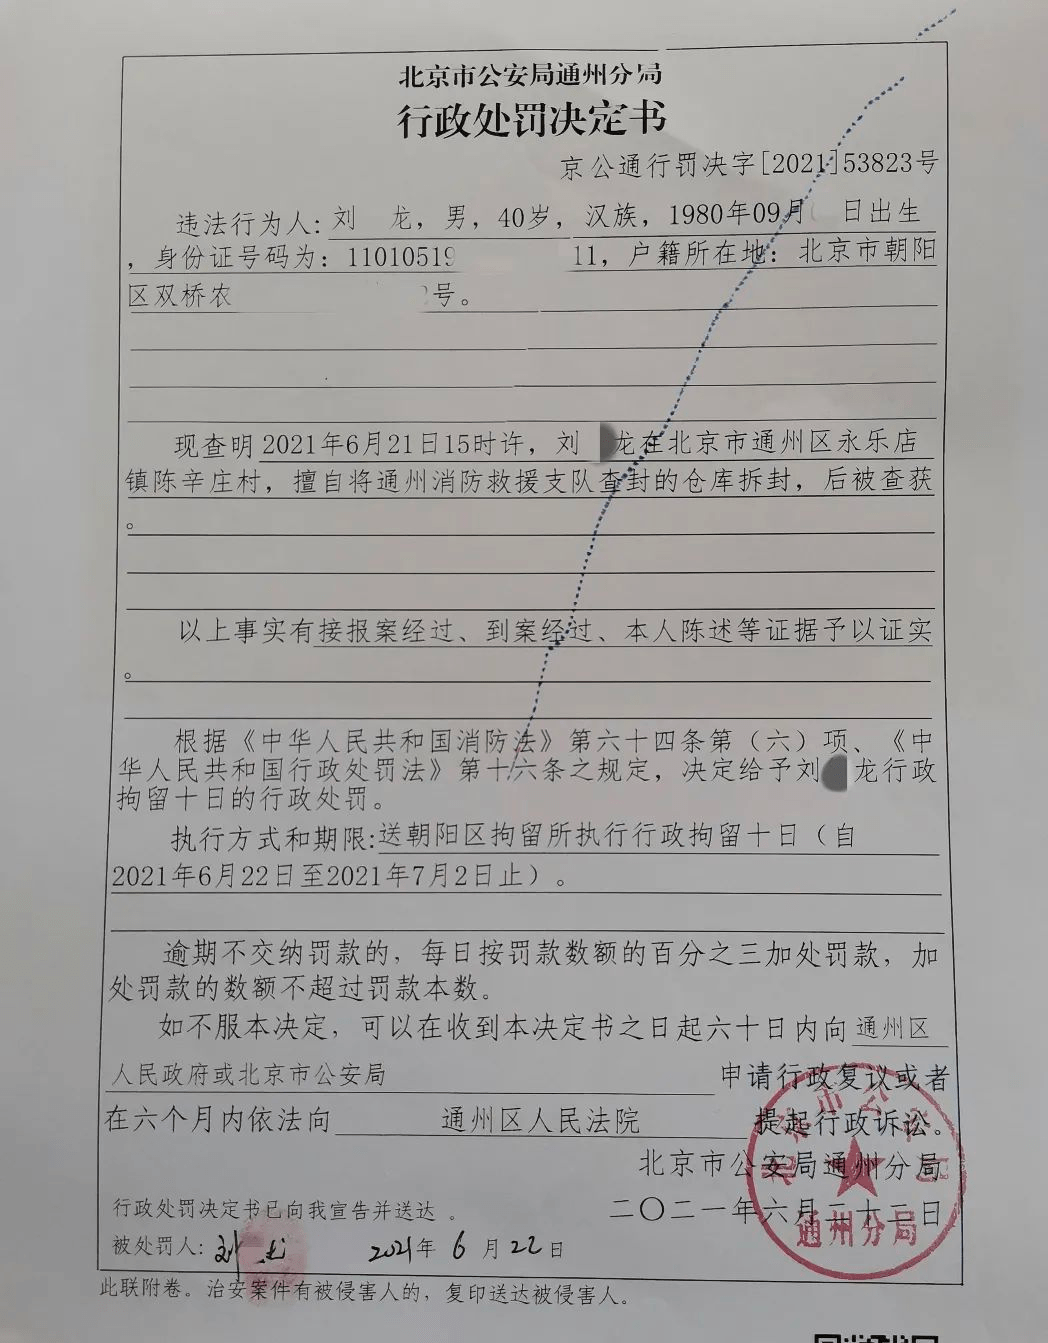 北京市公安局通州分局
行政处罚决定书
京公通行罚决字[2021]53823号
违法行为人:刘 龙，男，40岁，汉族，1980年09月 日出生
，身份证号码为：11010519 11，户籍所在地：北京市朝阳
区双桥农 号。
现查明2021年6月21日15时许，刘 龙在北京市通州区永乐店
镇陈辛庄村，擅自将通州消防救援支队查封的仓库拆封，后被查获
。
以上事实有接报案经过、到案经过、本人陈述等证据予以证实
。
根据《中华人民共和国消防法》第六十四条第（六）项、《中
华人民共和国行政处罚法》第十六条之规定，决定给予刘 龙行政
拘留十日的行政处罚。
执行方式和期限:送朝阳区拘留所执行行政拘留十日（自
2021年6月22日至2021年7月2日止）。
逾期不交纳罚款的，每日按罚款数额的百分之三加处罚款，加
处罚款的数额不超过罚款本数。
如不服本决定，可以在收到本决定书之日起六十日内向通州区
人民政府或北京市公安局 申请行政复议或者
在六个月内依法向 通州区人民法院 提起行政诉讼。
北京市公安局通州分局
二〇二一年六月二十二日
北京市公安局
通州分局
行政处罚决定书已向我宣告并送达。
被处罚人：刘 龙 2021年6月22日
此联附卷。治安案件有被侵害人的，复印送达被侵害人。